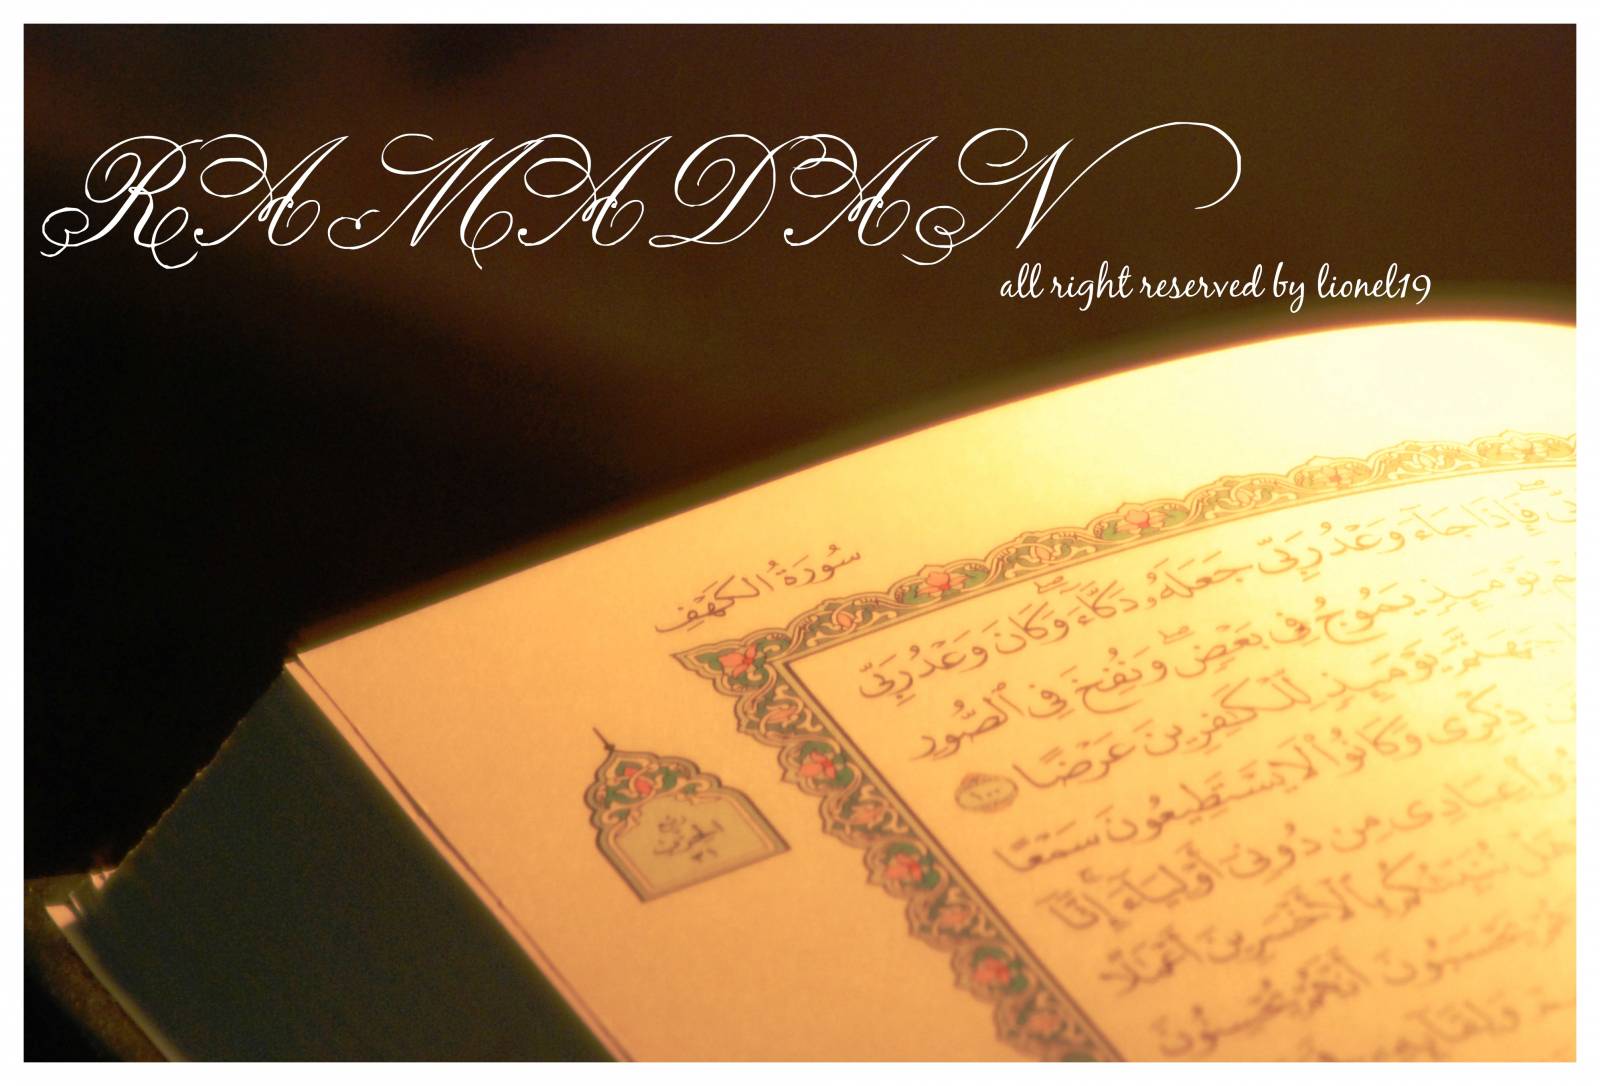 RAMADAN
all right reserved by lionel19
سُورَةُ الكَهْفِ
فَإِذَا جَآءَ وَعْدُ رَبِّى جَعَلَهُۥ دَكَّآءَ وَكَانَ وَعْدُ رَبِّى
يَوْمَئِذٍ يَمُوجُ فِى بَعْضٍ وَنُفِخَ فِى ٱلصُّورِ
جَهَنَّمَ يَوْمَئِذٍ لِّلْكَٰفِرِينَ عَرْضًا ١٠٠
ذِكْرِى وَكَانُوا۟ لَا يَسْتَطِيعُونَ سَمْعًا
عِبَادِى مِن دُونِىٓ أَوْلِيَآءَ إِنَّآ
هَلْ نُنَبِّئُكُم بِٱلْأَخْسَرِينَ أَعْمَٰلًا
يَحْسَبُونَ أَنَّهُمْ يُحْسِنُونَ
وَلِقَآئِهِۦ
ربع
الحزب
٣١